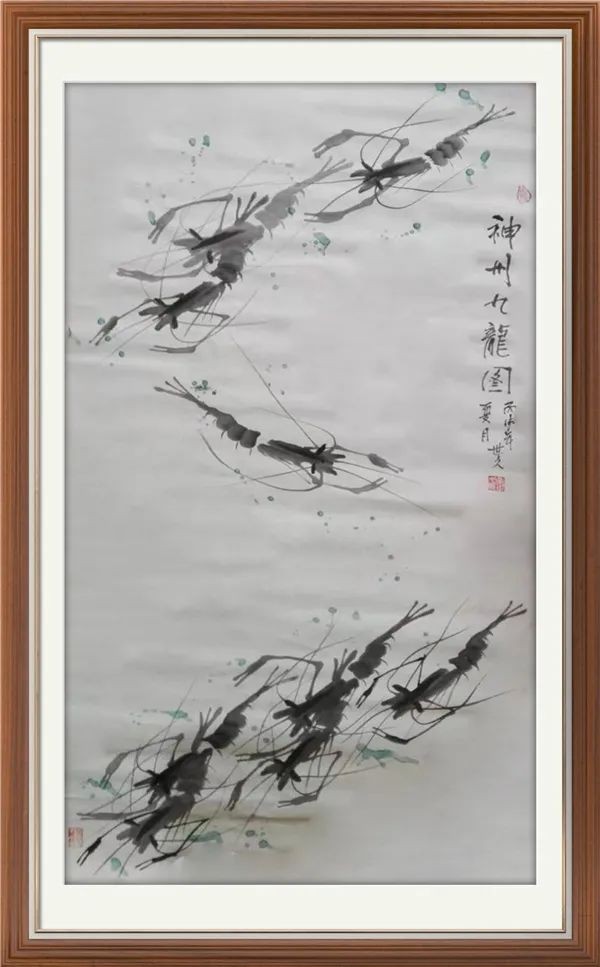 神州九龍图
丙申年
夏月 世人